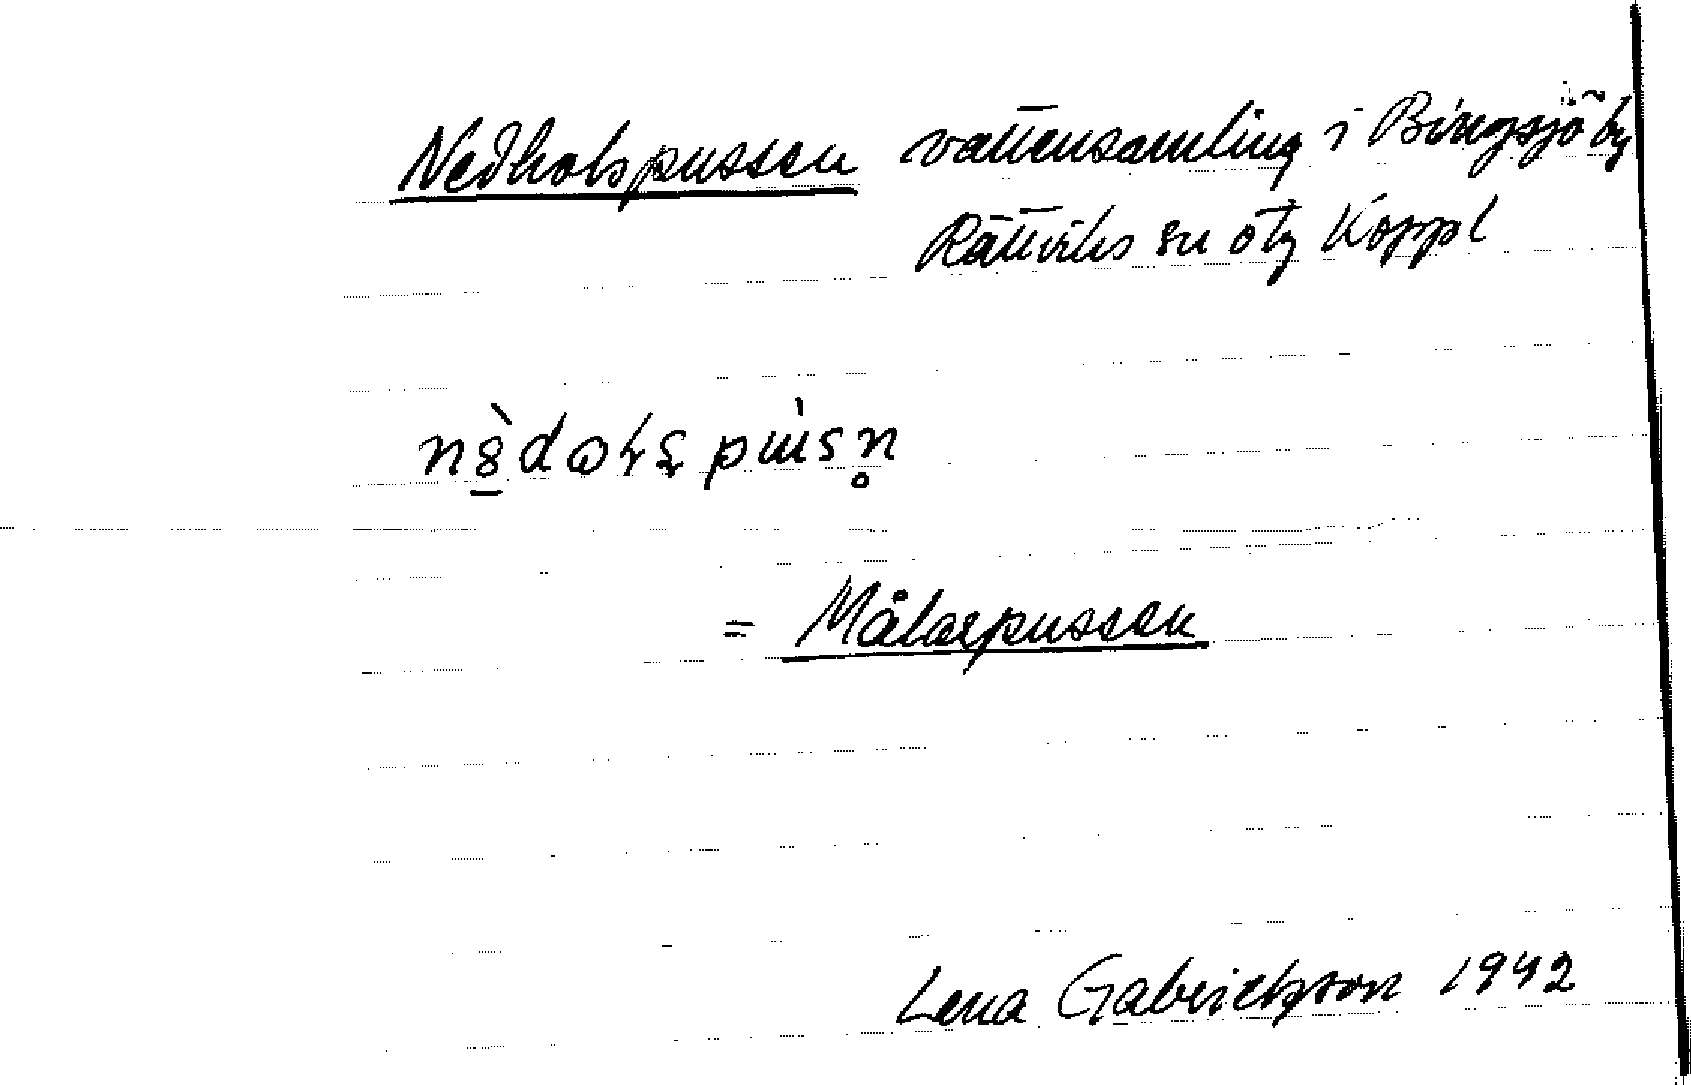 Nedholspussen vattensamling i Bingsjö by
Rättviks sn ötg Koppl
= Målarpussen
Lena Gabrielsson 1942